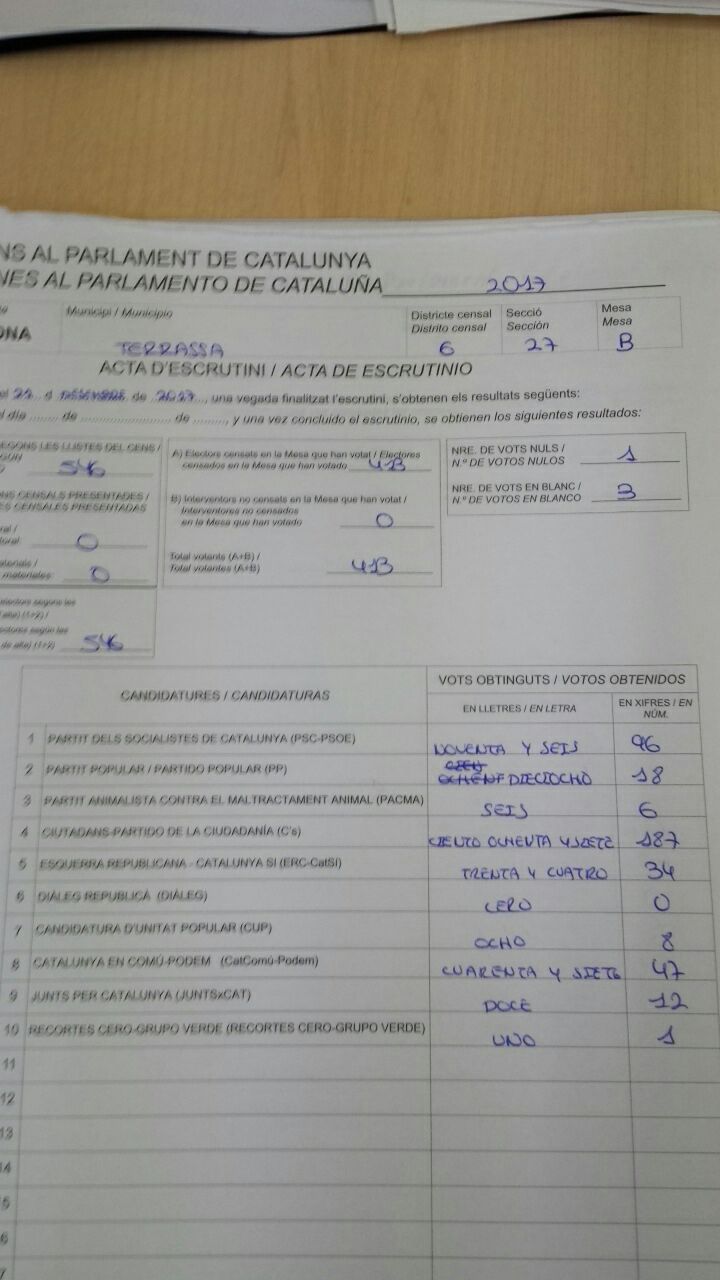 NS AL PARLAMENT DE CATALUNYA
NES AL PARLAMENTO DE CATALUÑA 2017
Municipi / Municipio
Districte censal
Distrito censal
Secció
Sección
Mesa
Mesa
ONA TERRASSA 6 27 B
ACTA D'ESCRUTINI / ACTA DE ESCRUTINIO
el 21 d de 2017, una vegada finalitzat l'escrutini, s'obtenen els resultats següents:
l día ........ de ........................ de ........, y una vez concluido el escrutinio, se obtienen los siguientes resultados:
EGONS LES LLISTES DEL CENS /
GÚN
546
NS CENSALS PRESENTADES /
ES CENSALES PRESENTADAS
ral /
toral: 0
aterials /
materiales: 0
electors segons les
alta) (1+2) /
ectores según las
de alta) (1+2) 546
A) Electors censats en la Mesa que han votat / Electores
censados en la Mesa que han votado 413
B) Interventors no censats en la Mesa que han votat /
Interventores no censados
en la Mesa que han votado 0
Total votants (A+B) /
Total votantes (A+B) 413
NRE. DE VOTS NULS /
N.º DE VOTOS NULOS 1
NRE. DE VOTS EN BLANC /
N.º DE VOTOS EN BLANCO 3
CANDIDATURES / CANDIDATURAS
VOTS OBTINGUTS / VOTOS OBTENIDOS
EN LLETRES / EN LETRA
EN XIFRES / EN
NÚM.
1 PARTIT DELS SOCIALISTES DE CATALUNYA (PSC-PSOE) NOVENTA Y SEIS 96
2 PARTIT POPULAR / PARTIDO POPULAR (PP) DIECIOCHO 18
3 PARTIT ANIMALISTA CONTRA EL MALTRACTAMENT ANIMAL (PACMA) SEIS 6
4 CIUTADANS-PARTIDO DE LA CIUDADANÍA (C's) CIENTO OCHENTA Y SIETE 187
5 ESQUERRA REPUBLICANA - CATALUNYA SI (ERC-CatSí) TRENTA Y CUATRO 34
6 DIÀLEG REPUBLICÀ (DIÀLEG) CERO 0
7 CANDIDATURA D'UNITAT POPULAR (CUP) OCHO 8
8 CATALUNYA EN COMÚ-PODEM (CatComú-Podem) CUARENTA Y SIETE 47
9 JUNTS PER CATALUNYA (JUNTSxCAT) DOCE 12
10 RECORTES CERO-GRUPO VERDE (RECORTES CERO-GRUPO VERDE) UNO 1
11
12
13
14
5
6
7